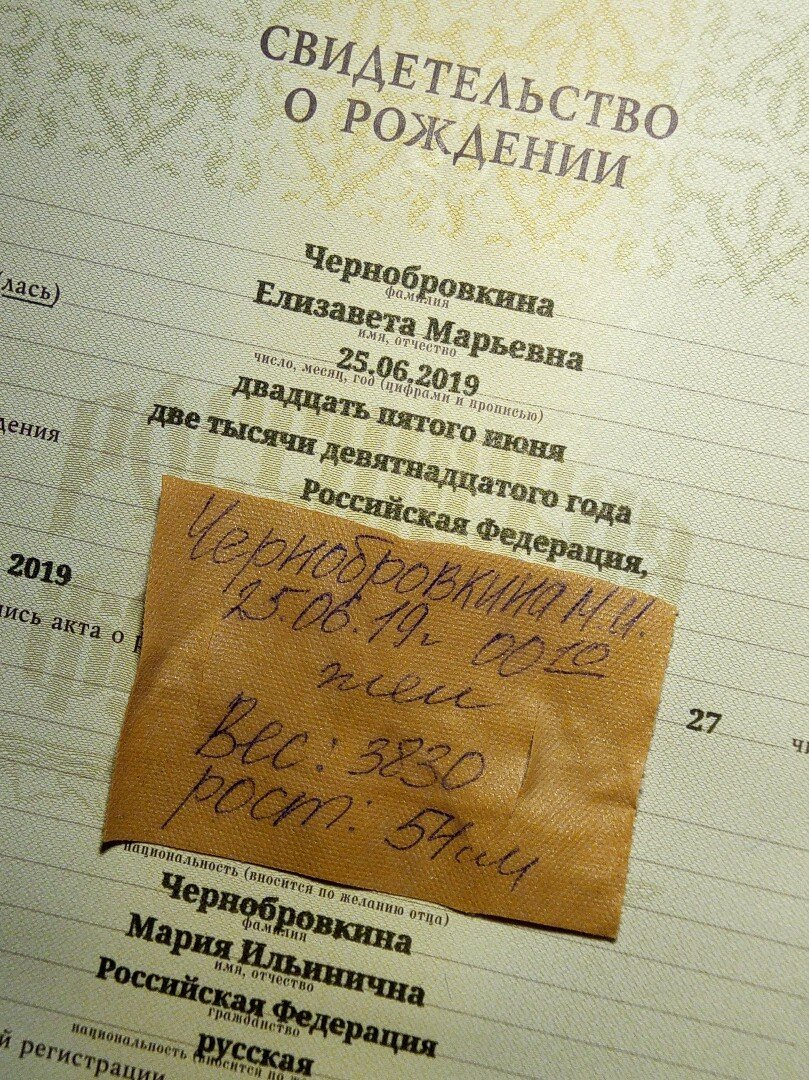 СВИДЕТЕЛЬСТВО
О РОЖДЕНИИ
Чернобровкина
фамилия
лась)
Елизавета Марьевна
имя, отчество
25.06.2019
число, месяц, год (цифрами и прописью)
двадцать пятого июня
две тысячи девятнадцатого года
Российская Федерация,
Чернобровкина М.И.
25.06.19г 00 10
жен
Вес: 3830
рост: 54см
2019
акта о
27
национальность (вносится по желанию отца)
Чернобровкина
фамилия
Мария Ильинична
имя, отчество
Российская Федерация
гражданство
русская
национальность (вносится по
регистрации